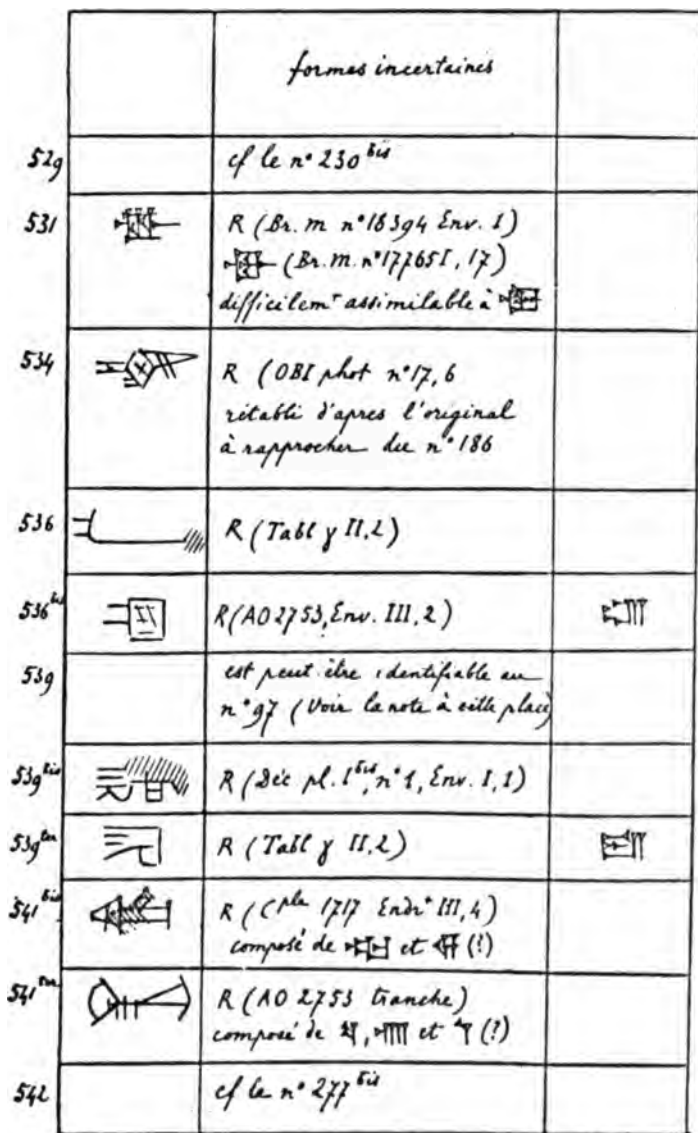 formes incertaines
529 cf le n° 230 bis
531 R (Br. m n° 16394 Env. I)
(Br. m. n° 17765 I, 17)
difficilemt assimilable à
534 R (OBI phot n° 17, 6
rétabli d'apres l'original
à rapprocher du n° 186
536 R (Tabl γ II, 2)
536 bis R (AO 2753, Env. III, 2)
539 est peut être identifiable au
n° 97 (Voir la note à cette place)
539 bis R (Déc pl. I bis, n° 1, Env. I, 1)
539 ter R (Tabl γ II, 2)
541 bis R (Cple 1717 Endrt III, 4)
composé de et (?)
541 ter R (AO 2753 tranche)
composé de , et (?)
542 cf le n° 277 bis